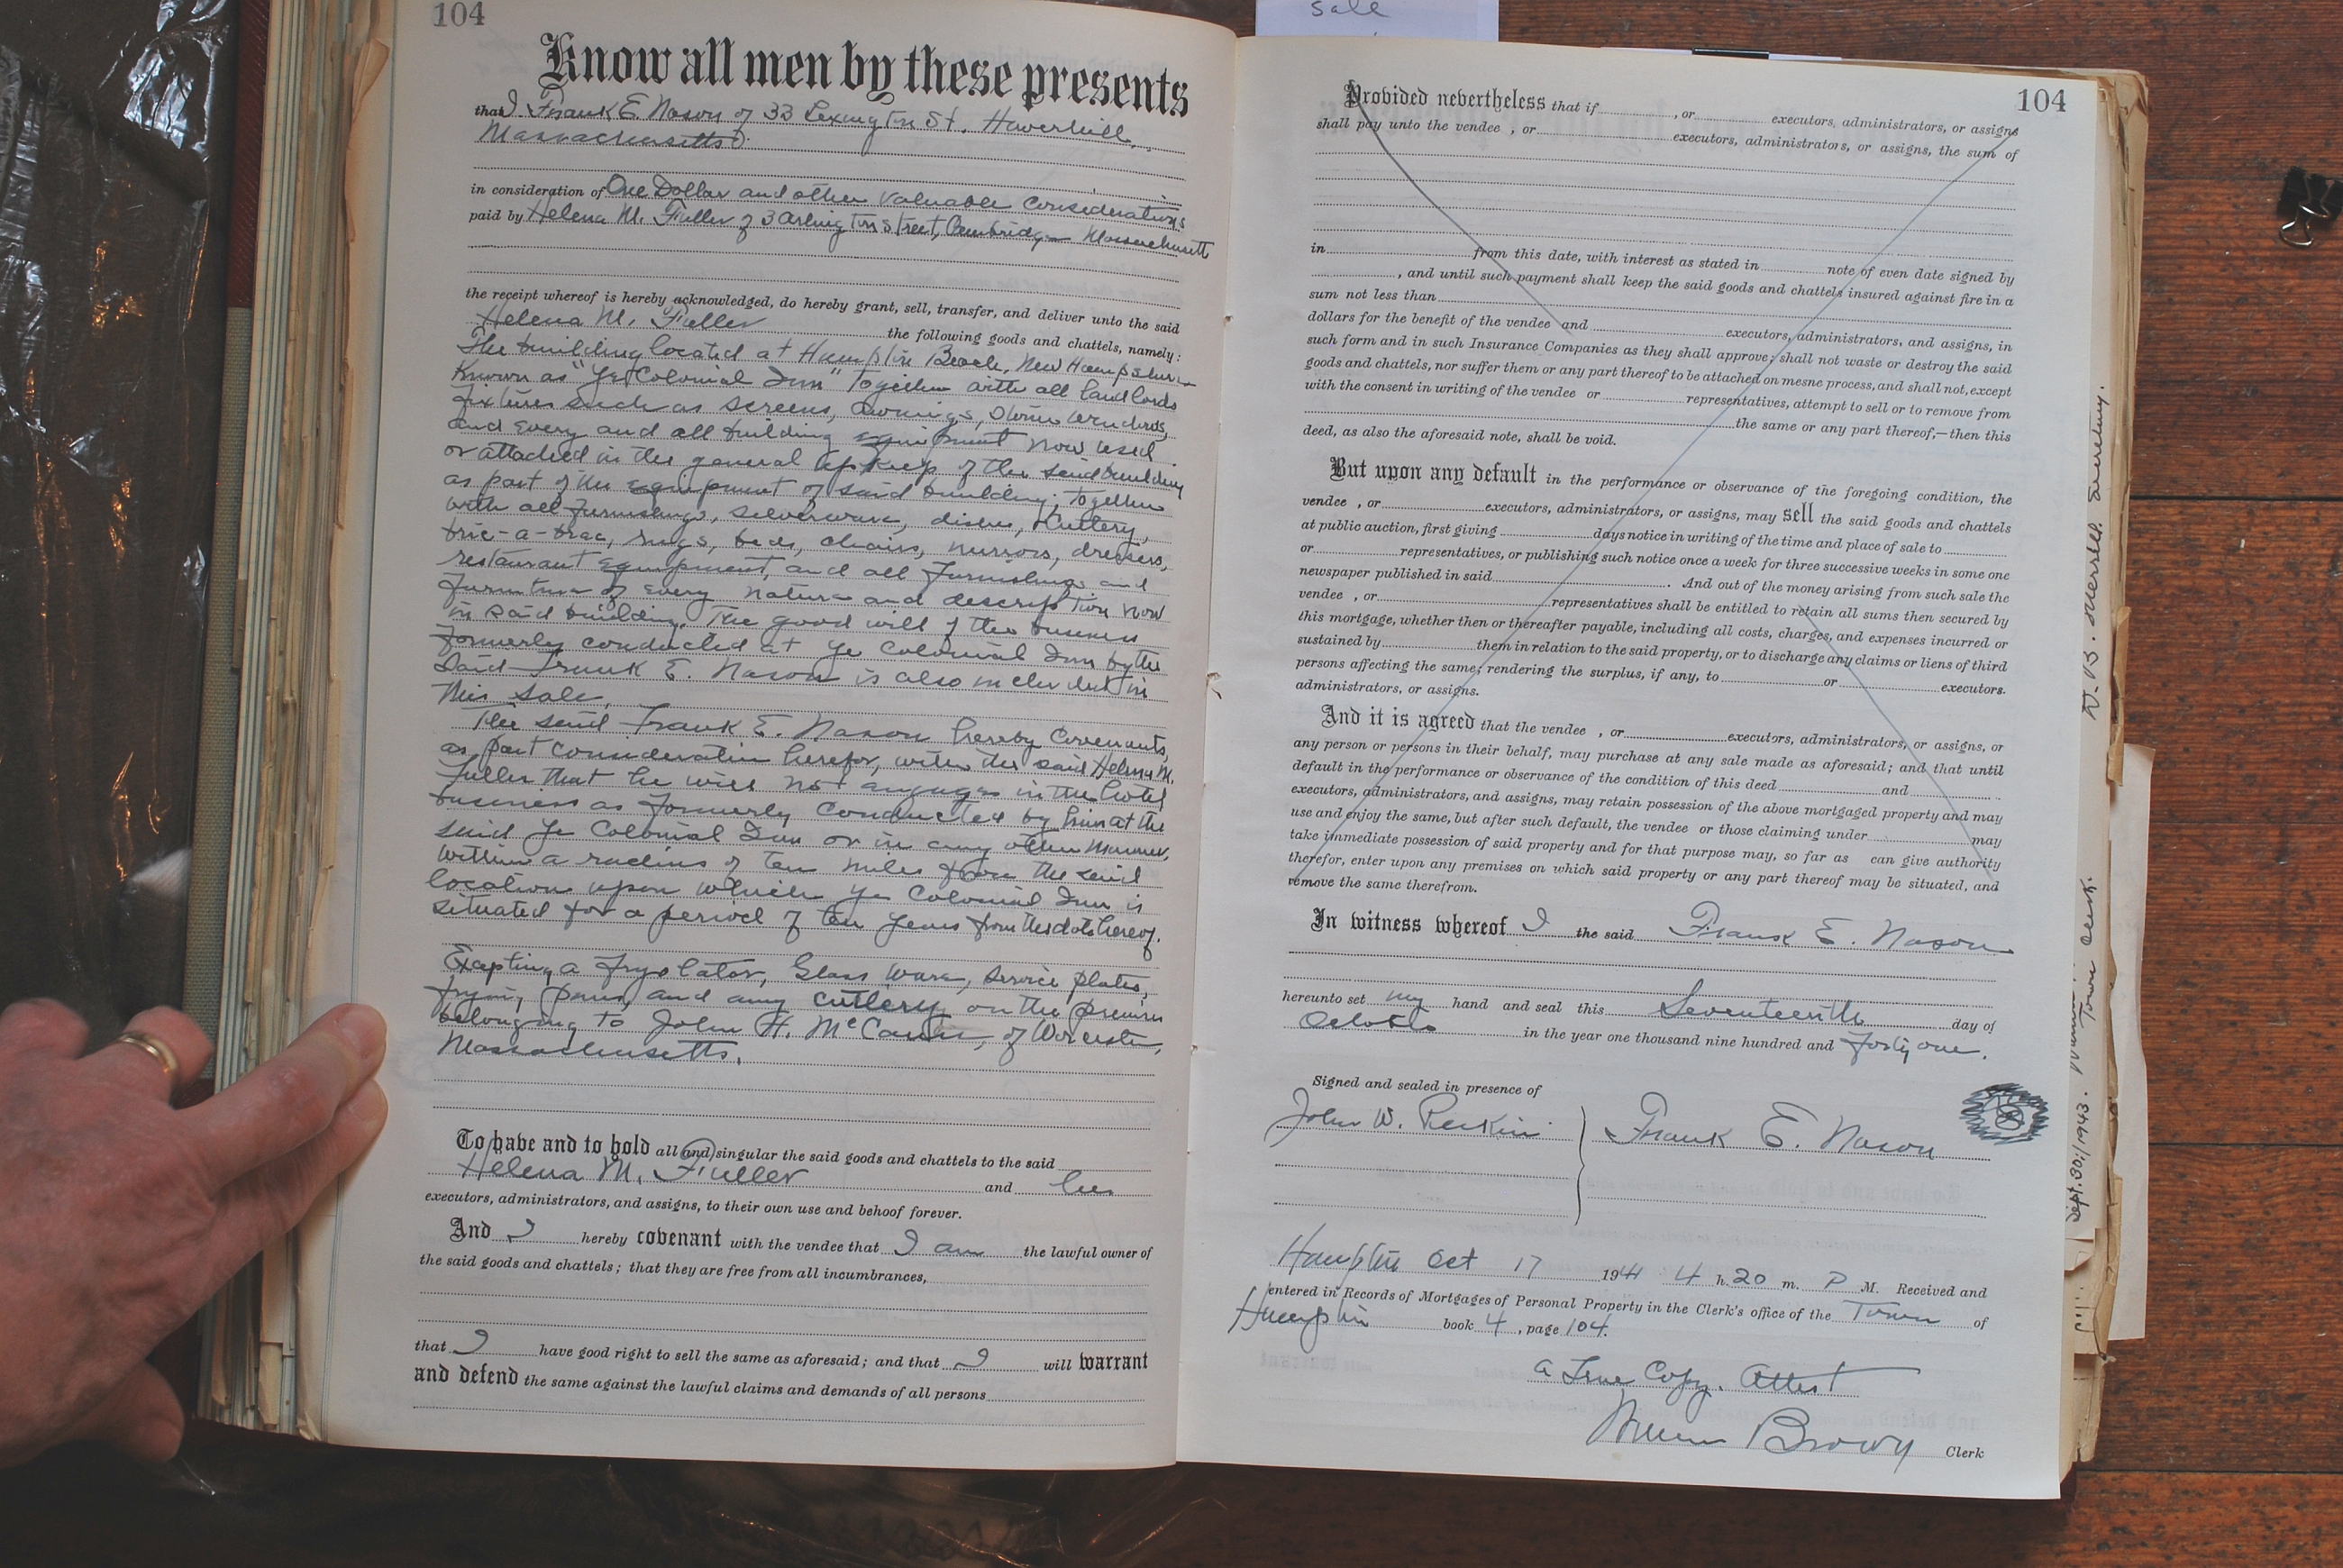 104
Know all men by these presents
that I Frank E Nason of 33 Lexington St. Haverhill,
Massachusetts
in consideration of One Dollar and other valuable considerations
paid by Helena M. Fuller of 3 Arlington Street, Cambridge Massachusetts
the receipt whereof is hereby acknowledged, do hereby grant, sell, transfer, and deliver unto the said
Helena M. Fuller the following goods and chattels, namely:
The building located at Hampton Beach, New Hampshire
Known as "Ye Colonial Inn" together with all landlords
fixtures such as screens, awnings, storm windows,
and every and all building equipment now used
or attached in the general upkeep of the said building
as part of the equipment of said building; together
with all furnishings, silverware, dishes, cutlery,
bric-a-brac, rugs, beds, chairs, mirrors, dressers,
restaurant equipment, and all furnishings and
furniture of every nature and description now
in said building. The good will of the business
formerly conducted at Ye Colonial Inn by the
said Frank E. Nason is also included in
this sale.
The said Frank E. Nason hereby covenants,
as part consideration herefor, with the said Helena M.
Fuller that he will not engage in the hotel
business as formerly conducted by him at the
said Ye Colonial Inn or in any other manner,
within a radius of ten miles from the said
location upon which Ye Colonial Inn is
situated for a period of ten years from the date hereof.
Excepting a fryolator, Glass ware, service plates,
frying pans, and any cutlery on the premises
belonging to John H. of Worcester,
Massachusetts.
To have and to hold all and singular the said goods and chattels to the said
Helena M. Fuller and her
executors, administrators, and assigns, to their own use and behoof forever.
And I hereby covenant with the vendee that I am the lawful owner of
the said goods and chattels; that they are free from all incumbrances,
that I have good right to sell the same as aforesaid; and that I will warrant
and defend the same against the lawful claims and demands of all persons
sale
104
Provided nevertheless that if , or executors, administrators, or assigns
shall pay unto the vendee , or executors, administrators, or assigns, the sum of
in from this date, with interest as stated in note of even date signed by
, and until such payment shall keep the said goods and chattels insured against fire in a
sum not less than
dollars for the benefit of the vendee and executors, administrators, and assigns, in
such form and in such Insurance Companies as they shall approve; shall not waste or destroy the said
goods and chattels, nor suffer them or any part thereof to be attached on mesne process, and shall not, except
with the consent in writing of the vendee or representatives, attempt to sell or to remove from
the same or any part thereof,—then this
deed, as also the aforesaid note, shall be void.
But upon any default in the performance or observance of the foregoing condition, the
vendee , or executors, administrators, or assigns, may sell the said goods and chattels
at public auction, first giving days notice in writing of the time and place of sale to
or representatives, or publishing such notice once a week for three successive weeks in some one
newspaper published in said . And out of the money arising from such sale the
vendee , or representatives shall be entitled to retain all sums then secured by
this mortgage, whether then or thereafter payable, including all costs, charges, and expenses incurred or
sustained by them in relation to the said property, or to discharge any claims or liens of third
persons affecting the same; rendering the surplus, if any, to or executors.
administrators, or assigns.
And it is agreed that the vendee , or executors, administrators, or assigns, or
any person or persons in their behalf, may purchase at any sale made as aforesaid; and that until
default in the performance or observance of the condition of this deed and
executors, administrators, and assigns, may retain possession of the above mortgaged property and may
use and enjoy the same, but after such default, the vendee or those claiming under may
take immediate possession of said property and for that purpose may, so far as can give authority
therefor, enter upon any premises on which said property or any part thereof may be situated, and
remove the same therefrom.
In witness whereof I the said Frank E. Nason
hereunto set my hand and seal this Seventeenth day of
October in the year one thousand nine hundred and forty one.
Signed and sealed in presence of
John W. Perkins Frank E. Nason
Hampton Oct 17 1941 4 h. 20 m. P M. Received and
entered in Records of Mortgages of Personal Property in the Clerk's office of the Town of
Hampton book 4, page 104.
A True Copy. Attest
William Brown Clerk
Sept. 30, 1943. Town Clerk.